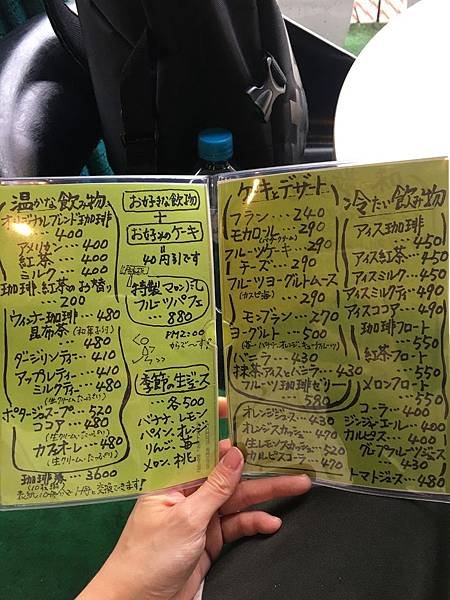 温かな飲み物
オリジナルブレンド珈琲
400
アメリカン…400
紅茶…400
ミルク…400
珈琲、紅茶のお替り
200
ウィンナー珈琲…480
昆布茶(和菓子付)…480
ダージリンティー…410
アップルティー…410
ミルクティー…480
(生クリームたっぷり)
ポタージュスープ…520
ココア…480
(生クリームたっぷり)
カフェオーレ…480
(生クリームたっぷり)
珈琲券…3600
お好きな飲物
+
お好みのケーキ
40円引です
特製マロン
フルーツパフェ
…880
PM2:00
から
季節の生ジュース
…各500
バナナ、レモン
パイン、オレンジ
りんご、苺
メロン、桃
ケーキとデザート
フラン…240
モカロール…290
フルーツケーキ…290
チーズ…290
フルーツヨーグルトムース
(カスピ海)…290
モンブラン…270
ヨーグルト…500
バニラ…430
抹茶アイスとバニラ…430
フルーツ珈琲ゼリー
580
オレンジジュース…430
オレンジスカッシュ…470
生レモンスカッシュ…520
カルピスコーラ…470
冷たい飲み物
アイス珈琲
…450
アイス紅茶…450
アイスミルク…450
アイスミルクティ…490
アイスココア…490
珈琲フロート
…550
紅茶フロート
…550
メロンフロート
…550
コーラ…400
ジンジャーエール…400
カルピス…400
グレープフルーツジュース
…430
トマトジュース…480